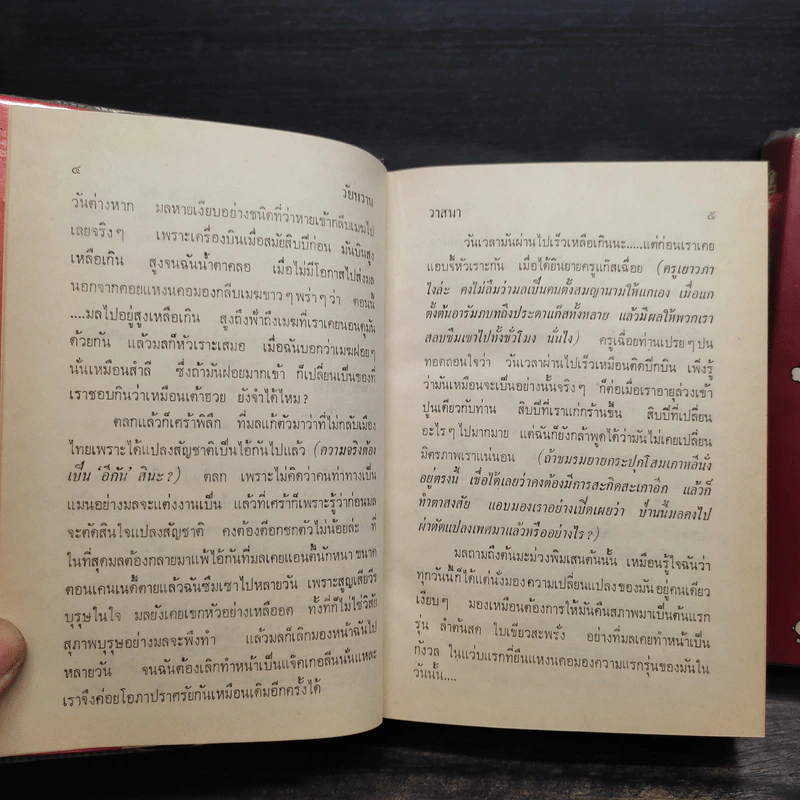 ๔
วัยหวาน
วันต่างหาก มลหายเงียบอย่างชนิดที่ว่าหายเข้ากลีบเมฆไป
เลยจริงๆ เพราะเครื่องบินเมื่อสมัยสิบปีก่อน มันบินสูง
เหลือเกิน สูงจนฉันน้ำตาคลอ เมื่อไม่มีโอกาสไปส่งมล
นอกจากคอยแหงนคอมองกลีบเมฆขาวๆพร่าๆว่า ตอนนี้
....มลไปอยู่สูงเหลือเกิน สูงถึงฟ้าถึงเมฆที่เราเคยนอนดูมัน
ด้วยกัน แล้วมลก็หัวเราะเสมอ เมื่อฉันบอกว่าเมฆฝอยๆ
นั่นเหมือนสำลี ซึ่งถ้ามันฝอยมากเข้า ก็เปลี่ยนเป็นของที่
เราชอบกินว่าเหมือนเต้าฮวย ยังจำได้ไหม?
ตลกแล้วก็เศร้าพิลึก ที่มลแก้ตัวมาว่าที่ไม่กลับเมือง
ไทยเพราะได้แปลงสัญชาติเป็นไอ้กันไปแล้ว (ความจริงต้อง
เป็น ‘อีกัน’ สินะ?) ตลก เพราะไม่คิดว่าคนท่าทางเป็น
แมนอย่างมลจะแต่งงานเป็น แล้วที่เศร้าก็เพราะรู้ว่าก่อนมล
จะตัดสินใจแปลงสัญชาติ คงต้องตีอกชกตัวไม่น้อยล่ะ ที่
ในที่สุดมลต้องกลายมาแพ้ไอ้กันที่มลเคยแอนตี้นักหนา ขนาด
ตอนเคนเนดี้ตายแล้วฉันซึมเซาไปหลายวัน เพราะสูญเสียวีร
บุรุษในใจ มลยังเคยเขกหัวอย่างเหลืออด ทั้งที่ก็ไม่ใช่วิสัย
สุภาพบุรุษอย่างมลจะพึงทำ แล้วมลก็เลิกมองหน้าฉันไป
หลายวัน จนฉันต้องเลิกทำหน้าเป็นแจ๊คเกอลีนนั่นแหละ
เราจึงค่อยโอภาปราศรัยกันเหมือนเดิมอีกครั้งได้
วาสนา
๕
วันเวลามันผ่านไปเร็วเหลือเกินนะ.....แต่ก่อนเราเคย
แอบจี้หัวเราะกัน เมื่อได้ยินยายครูแก๊สเฉื่อย (ครูเยาวภา
ไงล่ะ คงไม่ลืมว่ามลเป็นคนตั้งสมญานามให้แกเอง เมื่อแก
ตั้งต้นอารัมภบทถึงประดาแก๊สทั้งหลาย แล้วมีผลให้พวกเรา
สลบซึมเซาไปทั้งชั่วโมง นั่นไง) ครูเฉื่อยท่านเปรยๆ ปน
ทอดถอนใจว่า วันเวลาผ่านไปเร็วเหมือนติดปีกบิน เพิ่งรู้
ว่ามันเหมือนจะเป็นอย่างนั้นจริงๆ ก็ต่อเมื่อเราอายุล่วงเข้า
ปูนเดียวกับท่าน สิบปีที่เราแก่กร้านขึ้น สิบปีที่เปลี่ยน
อะไรๆไปมากมาย แต่ฉันก็ยังกล้าพูดได้ว่ามันไม่เคยเปลี่ยน
มิตรภาพเราแน่นอน (ถ้าชมรมยายกระปุกโสมเกาหลีนั่ง
อยู่ตรงนี้ เชื่อได้เลยว่าคงต้องมีการสะกิดสะเกาอีก แล้วก็
ทำตาสงสัย แอบมองเราอย่างเปิดเผยว่า ป่านนี้มลคงไป
ผ่าตัดแปลงเพศมาแล้วหรืออย่างไร?)
มลถามถึงต้นมะม่วงพิมเสนต้นนั้น เหมือนรู้ใจฉันว่า
ทุกวันนี้ก็ได้แต่นั่งมองความเปลี่ยนแปลงของมันอยู่คนเดียว
เงียบๆ มองเหมือนต้องการให้มันคืนสภาพมาเป็นต้นแรก
รุ่น ลำต้นสด ใบเขียวสะพรั่ง อย่างที่มลเคยทำหน้าเป็น
กังวล ในแว่บแรกที่ยืนแหงนคอมองความแรกรุ่นของมันใน
วันนั้น....